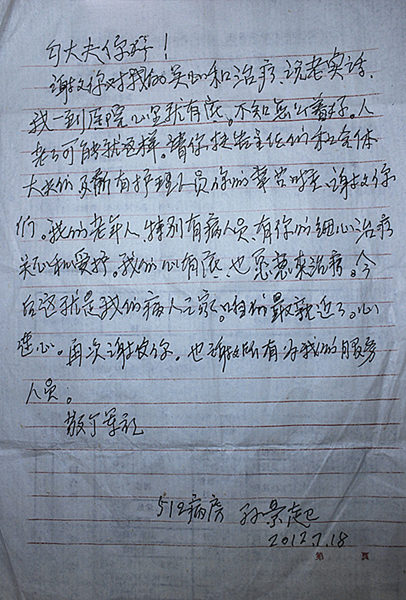 勾大夫你好！
谢谢你对我的关心和治疗，说老实话，
我一到医院心里就有底。不知怎么着好。人
老了可能就这样。请你转告主任们和全体
大夫们及所有护理人员你们辛苦啦，谢谢你
们。我们老年人，特别有病人员，有你们细心治疗
关心和爱护。我们心有底，也愿意来治疗。今
后这就是我们病人之家。咱们最亲近了。心
连心。再次谢谢你，也谢谢所有为我们服务
人员。
敬个军礼
512病房 孙景起
2012.7.18
第 页